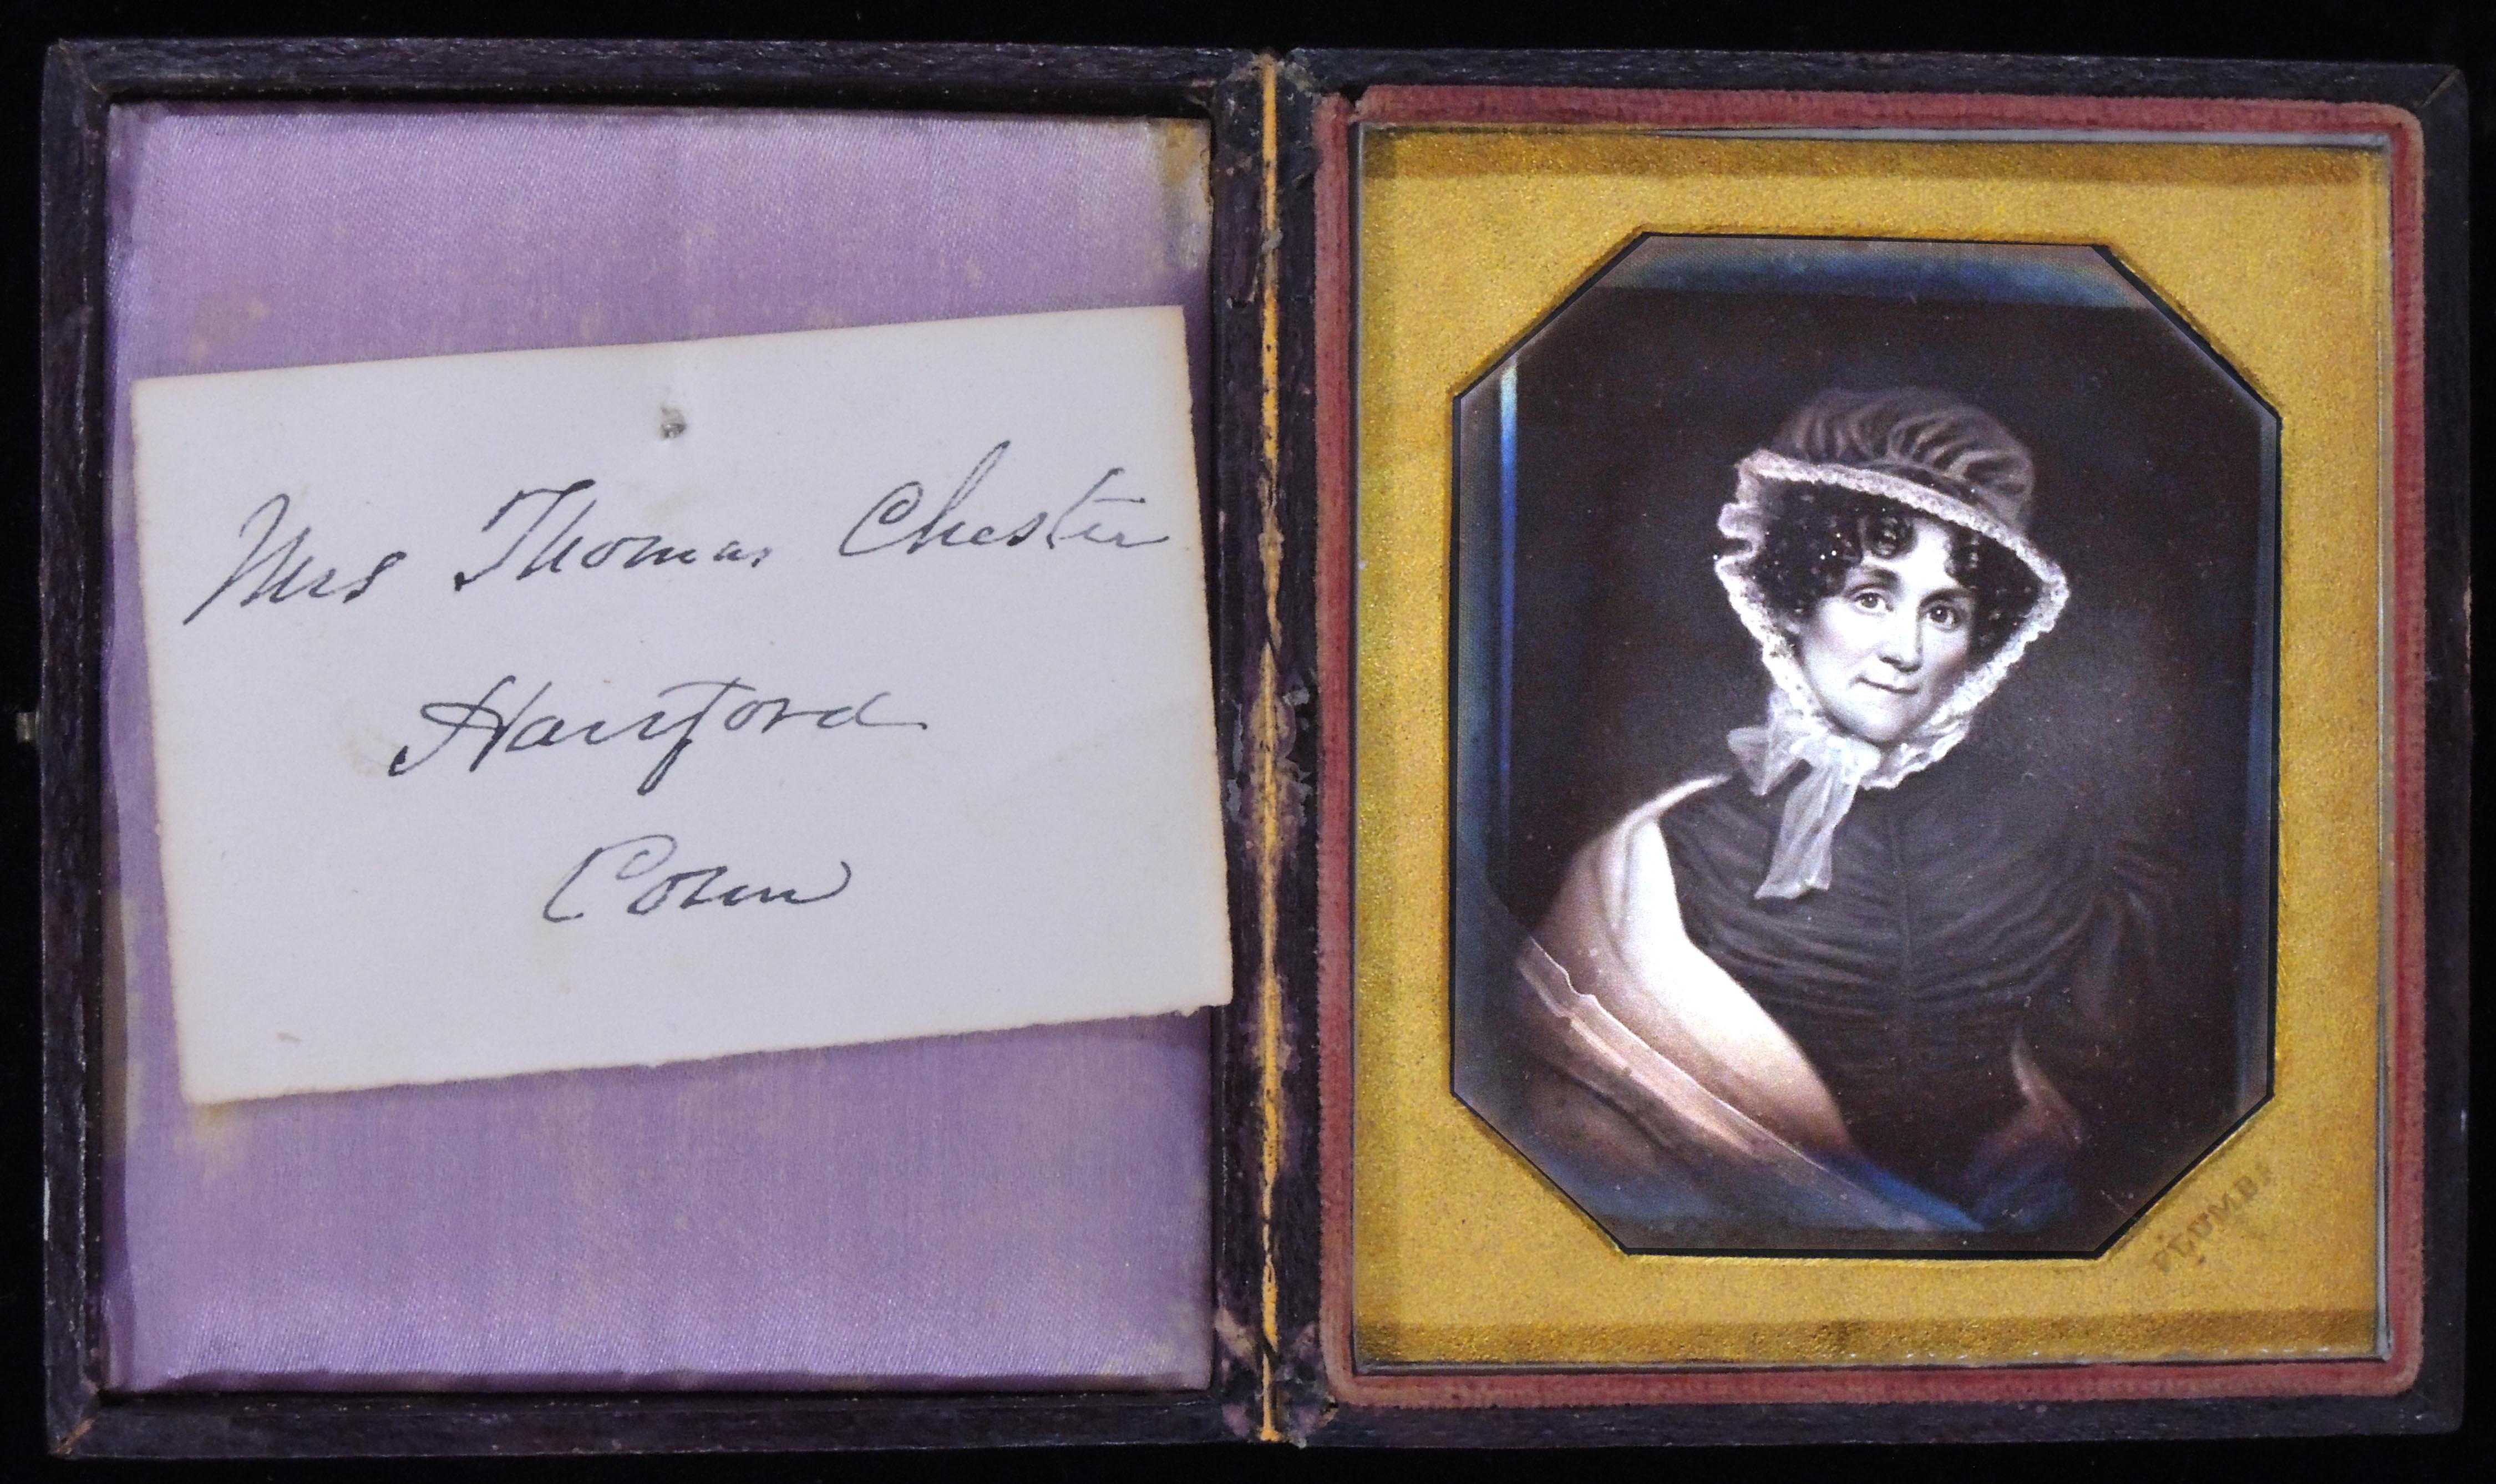 Mrs Thomas Chester
Hartford
Conn
PLUMBE